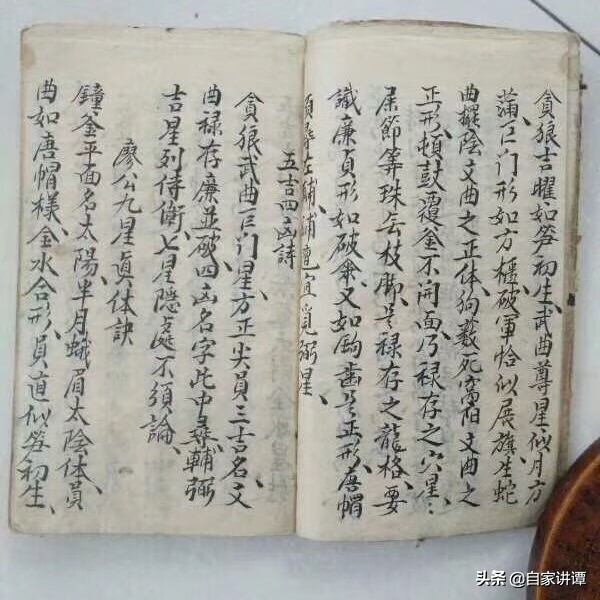 貪狼吉曜如笋初生、武曲尊星似月方
蒲、巨门形如方櫃、破軍恰似展旗、生蛇
曲擺陰文曲之正体、狗薮死窩阳文曲之
正形、頓鼓覆釜不開面、乃禄存之穴星、
屎節等珠去枝脚是禄存之龍格、要
識廉貞形如破傘又如鋸齒是正形、唐帽
頭尋左辅、辅邉宜覓弼星、
五吉四凶詩
貪狼武曲巨门星方正尖員三吉名、文
曲禄存廉並破四凶名字此中尋輔弼
吉星列侍衛、七星隠處不須論、
廖公九星真体訣
鐘釜平面名太陽、半月蛾眉太陰体、員
曲如唐帽様、金水合形、員道似笋初生、
头条 @自家讲谭